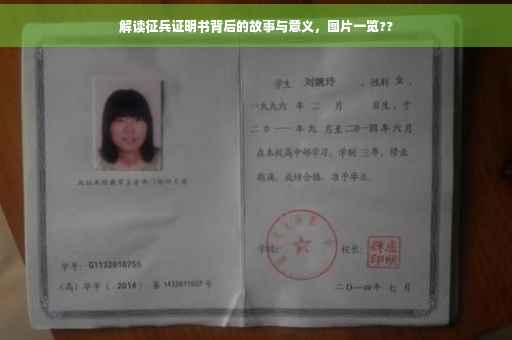 解读征兵证明书背后的故事与意义，图片一览??
学生 刘婉玲 ，性别 女 ，
一九九六 年 二 月 日生，于
二〇一一 年 九 月至 二〇一四 年 六 月
在本校高中部学习，学制 三 年，修业
期满，成绩合格，准予毕业。
学校：
校长：
学号：G1132010755
（高）毕字（ 2014 ）第 1432011027 号
二〇一四年 七 月